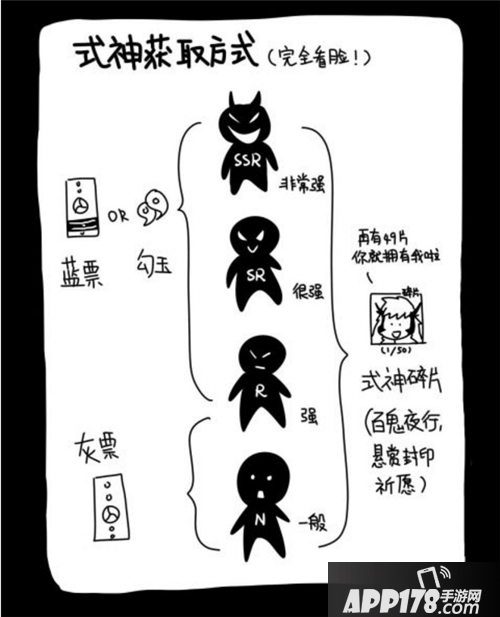 式神获取方式(完全看脸!)
SSR
非常强
OR
蓝票
勾玉
SR
很强
再有49片
你就拥有我啦
碎片
(1/50)
R
强
式神碎片
(百鬼夜行,
悬赏封印
祈愿)
灰票
N
一般
APP178手游网
.com